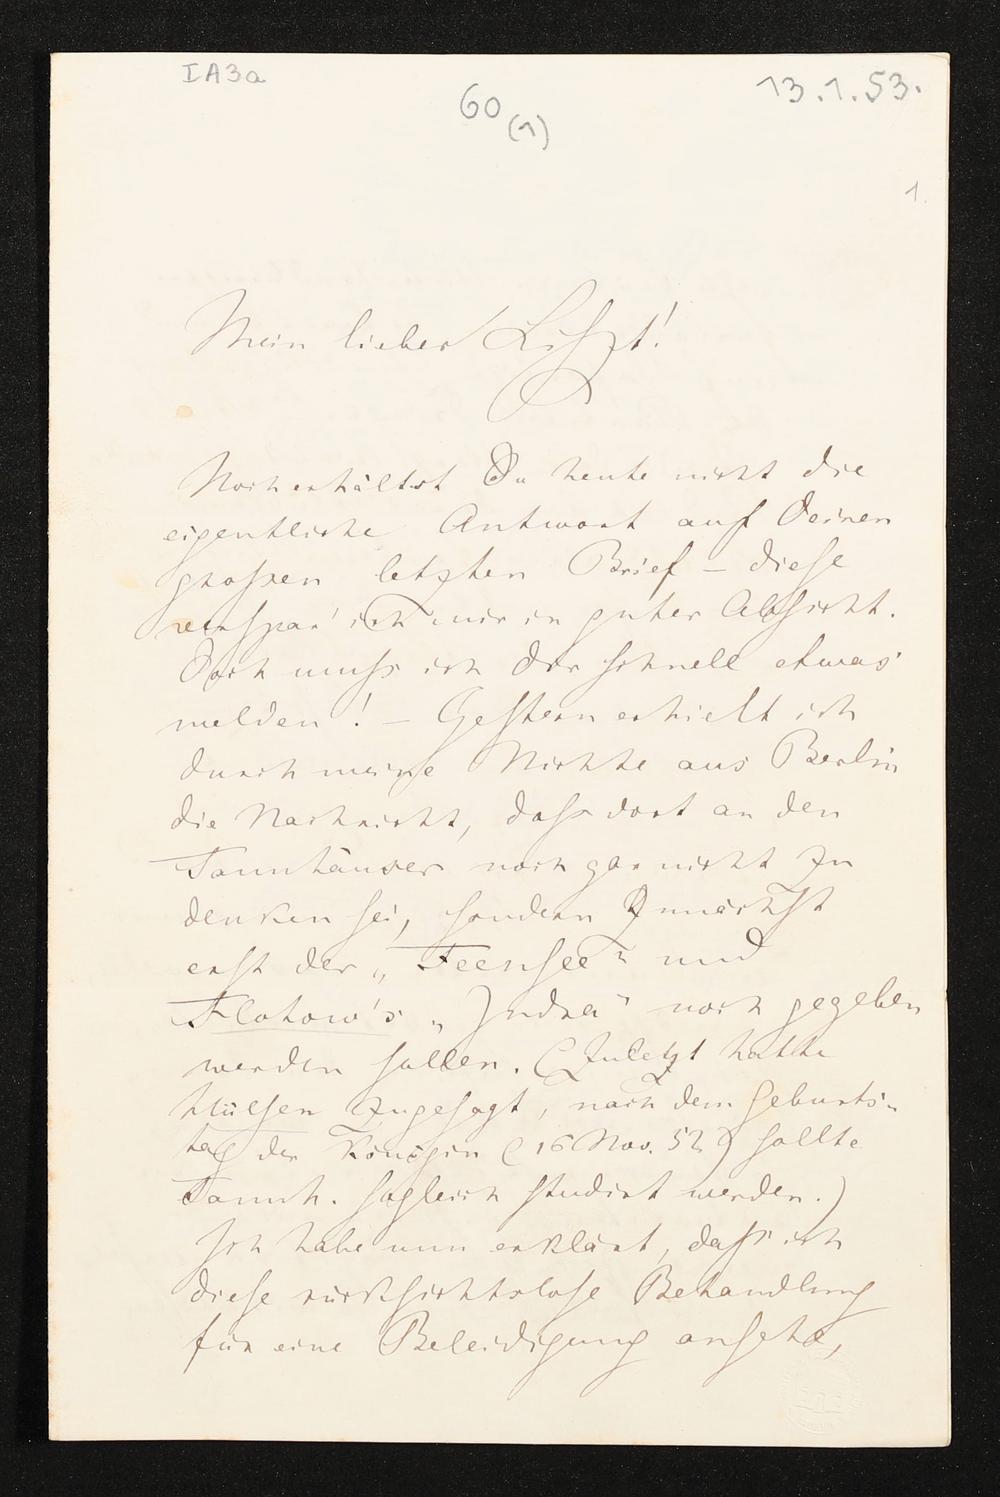 IA3a
60 (1)
13.1.53.
1.
Mein lieber Liszt!
Noch erhältst Du heute nicht die
eigentliche Antwort auf Deinen
großen letzten Brief – diese
verspar' ich mir in guter Absicht.
Doch muß ich Dir schnell etwas
melden! – Gestern erhielt ich
durch meine Nichte aus Berlin
die Nachricht, daß dort an den
Tannhäuser noch gar nicht zu
denken sei, sondern zunächst
erst der „Feensee“ und
Flotow's „Indra“ noch gegeben
werden sollen. (Zuletzt hatte
Hülsen zugesagt, nach dem Geburts-
tag der Königin (16 Nov. 52) sollte
Tannh. sogleich studirt werden.)
Ich habe nun erklärt, daß ich
diese rücksichtslose Behandlung
für eine Beleidigung ansehe,